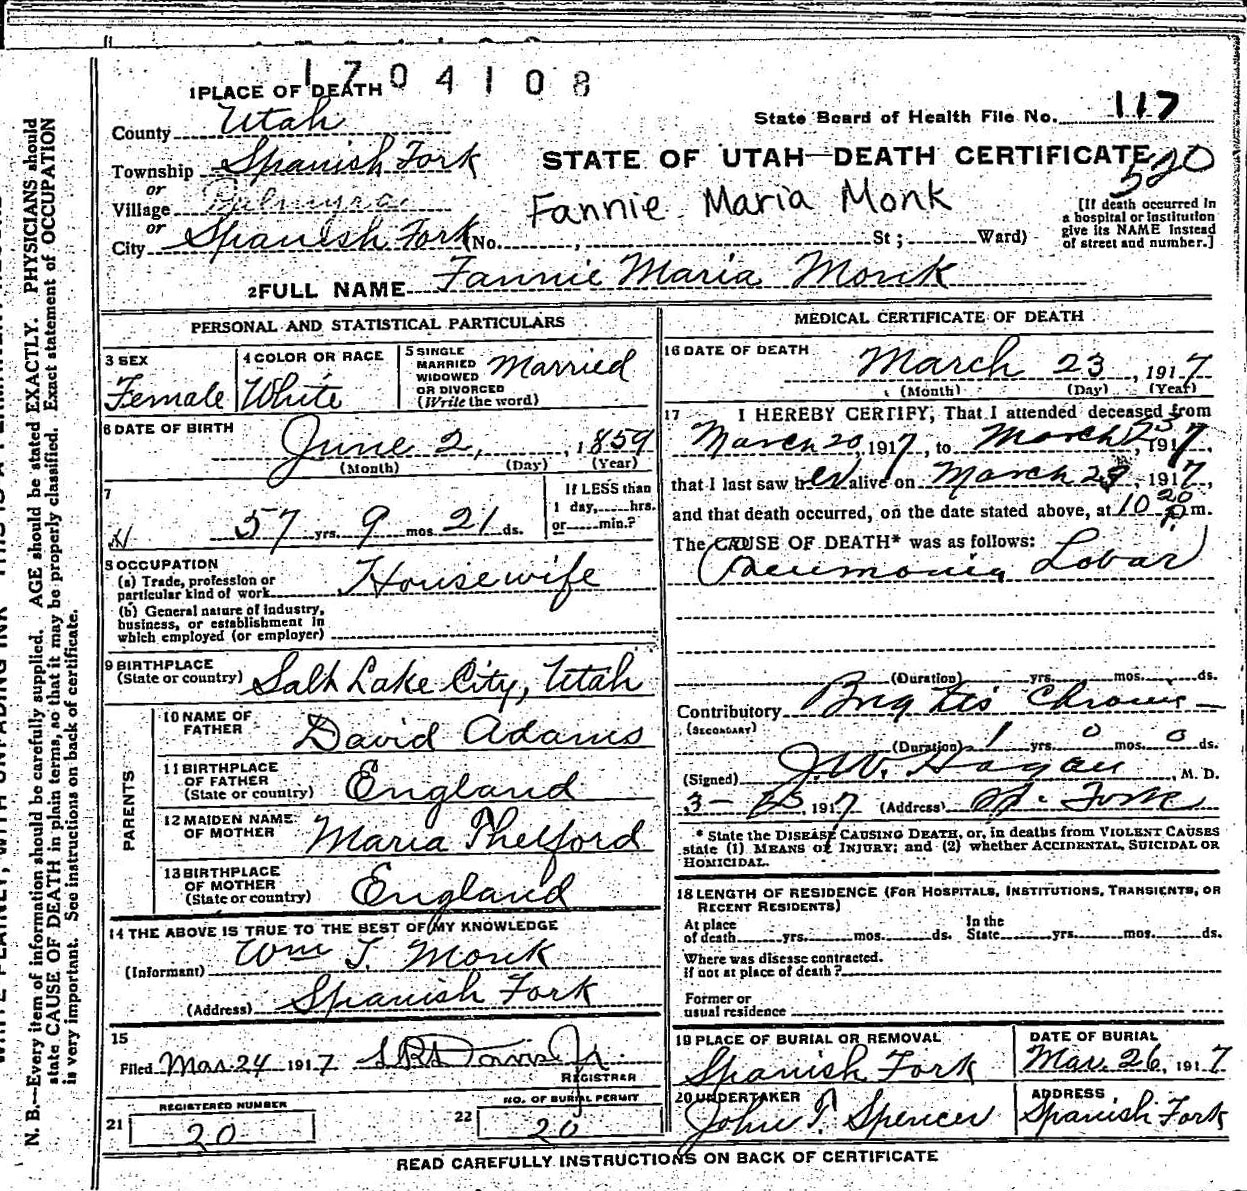 1704108
1 PLACE OF DEATH
County Utah
State Board of Health File No. 117
Township Spanish Fork
STATE OF UTAH—DEATH CERTIFICATE
520
or
Village Palmyra
Fannie Maria Monk
[If death occurred in
a hospital or institution
give its NAME instead
of street and number.]
or
City Spanish Fork (No. , St; Ward)
2 FULL NAME Fannie Maria Monk
PERSONAL AND STATISTICAL PARTICULARS
3 SEX
Female
4 COLOR OR RACE
White
5 SINGLE
MARRIED
WIDOWED
OR DIVORCED
(Write the word)
Married
6 DATE OF BIRTH
June 2, , 1859
(Month) (Day) (Year)
7
57 yrs. 9 mos. 21 ds.
If LESS than
1 day, hrs.
or min.?
8 OCCUPATION
(a) Trade, profession or
particular kind of work Housewife
(b) General nature of industry,
business, or establishment in
which employed (or employer)
9 BIRTHPLACE
(State or country) Salt Lake City, Utah
PARENTS
10 NAME OF
FATHER David Adams
11 BIRTHPLACE
OF FATHER
(State or country) England
12 MAIDEN NAME
OF MOTHER Maria Thelford
13 BIRTHPLACE
OF MOTHER
(State or country) England
14 THE ABOVE IS TRUE TO THE BEST OF MY KNOWLEDGE
(Informant) Wm T. Monk
(Address) Spanish Fork
15
Filed Mar. 24 1917
REGISTRAR
21
REGISTERED NUMBER
20
22
NO. OF BURIAL PERMIT
20
MEDICAL CERTIFICATE OF DEATH
16 DATE OF DEATH
March 23, 1917
(Month) (Day) (Year)
17
I HEREBY CERTIFY, That I attended deceased from
March 20, 1917, to March 23, 1917,
that I last saw her alive on March 23, 1917,
and that death occurred, on the date stated above, at 10 20 P m.
The CAUSE OF DEATH* was as follows:
Pneumonia Lobar
(Duration) yrs. mos. ds.
Contributory Chronic
(SECONDARY)
(Duration) 1 yrs. 0 mos. 0 ds.
(Signed) J.W. Hagan, M. D.
3- 1917 (Address) Sp. Fork
* State the DISEASE CAUSING DEATH, or, in deaths from VIOLENT CAUSES
state (1) MEANS of INJURY; and (2) whether ACCIDENTAL, SUICIDAL OR
HOMICIDAL.
18 LENGTH OF RESIDENCE (FOR HOSPITALS, INSTITUTIONS, TRANSIENTS, OR
RECENT RESIDENTS)
At place
of death yrs. mos. ds.
In the
State yrs. mos. ds.
Where was disease contracted.
if not at place of death?
Former or
usual residence
19 PLACE OF BURIAL OR REMOVAL
Spanish Fork
DATE OF BURIAL
Mar. 26, 1917
20 UNDERTAKER
John T. Spencer
ADDRESS
Spanish Fork
READ CAREFULLY INSTRUCTIONS ON BACK OF CERTIFICATE
N. B.—Every item of information should be carefully supplied. AGE should be stated EXACTLY. PHYSICIANS should
state CAUSE OF DEATH in plain terms, so that it may be properly classified. Exact statement of OCCUPATION
is very important. See instructions on back of certificate.